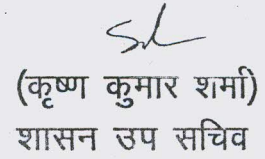 (कृष्ण कुमार शर्मा)
शासन उप सचिव